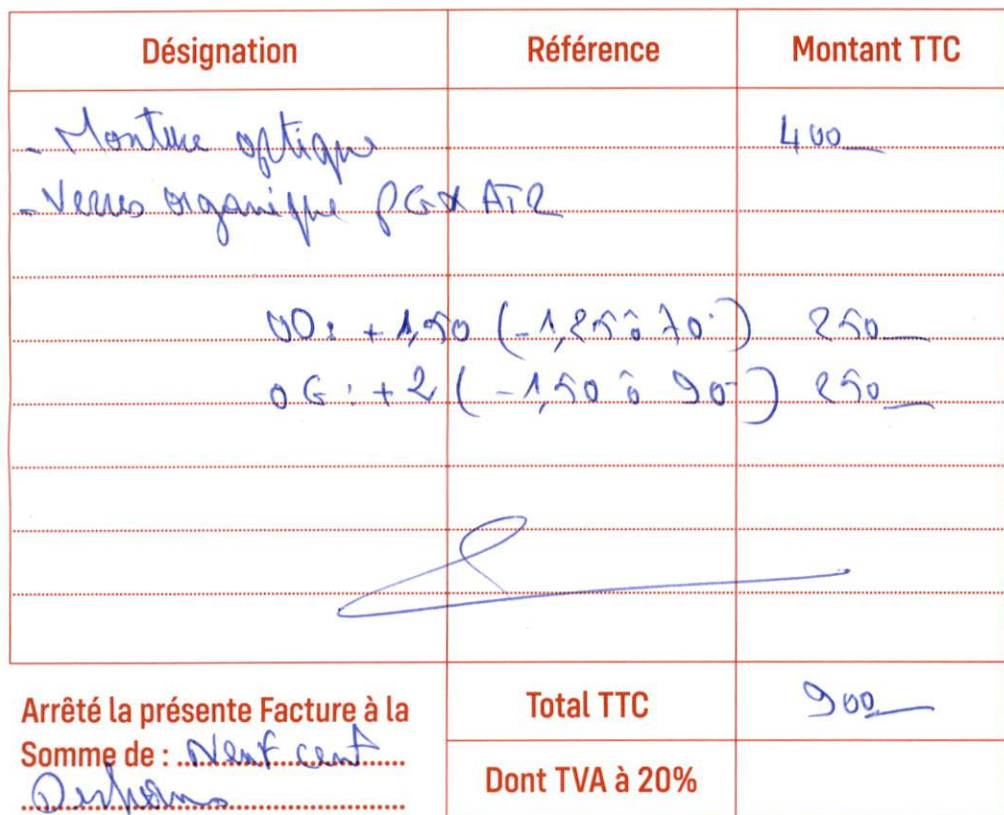 Désignation Référence Montant TTC
- Monture optique 400
- Verres organique PGX ATR
OD: +1,50 (-1,25 à 70°) 250
OG: +2 (-1,50 à 90°) 250
Arrêté la présente Facture à la Total TTC 900
Somme de : Neuf cent
Dirhams Dont TVA à 20%